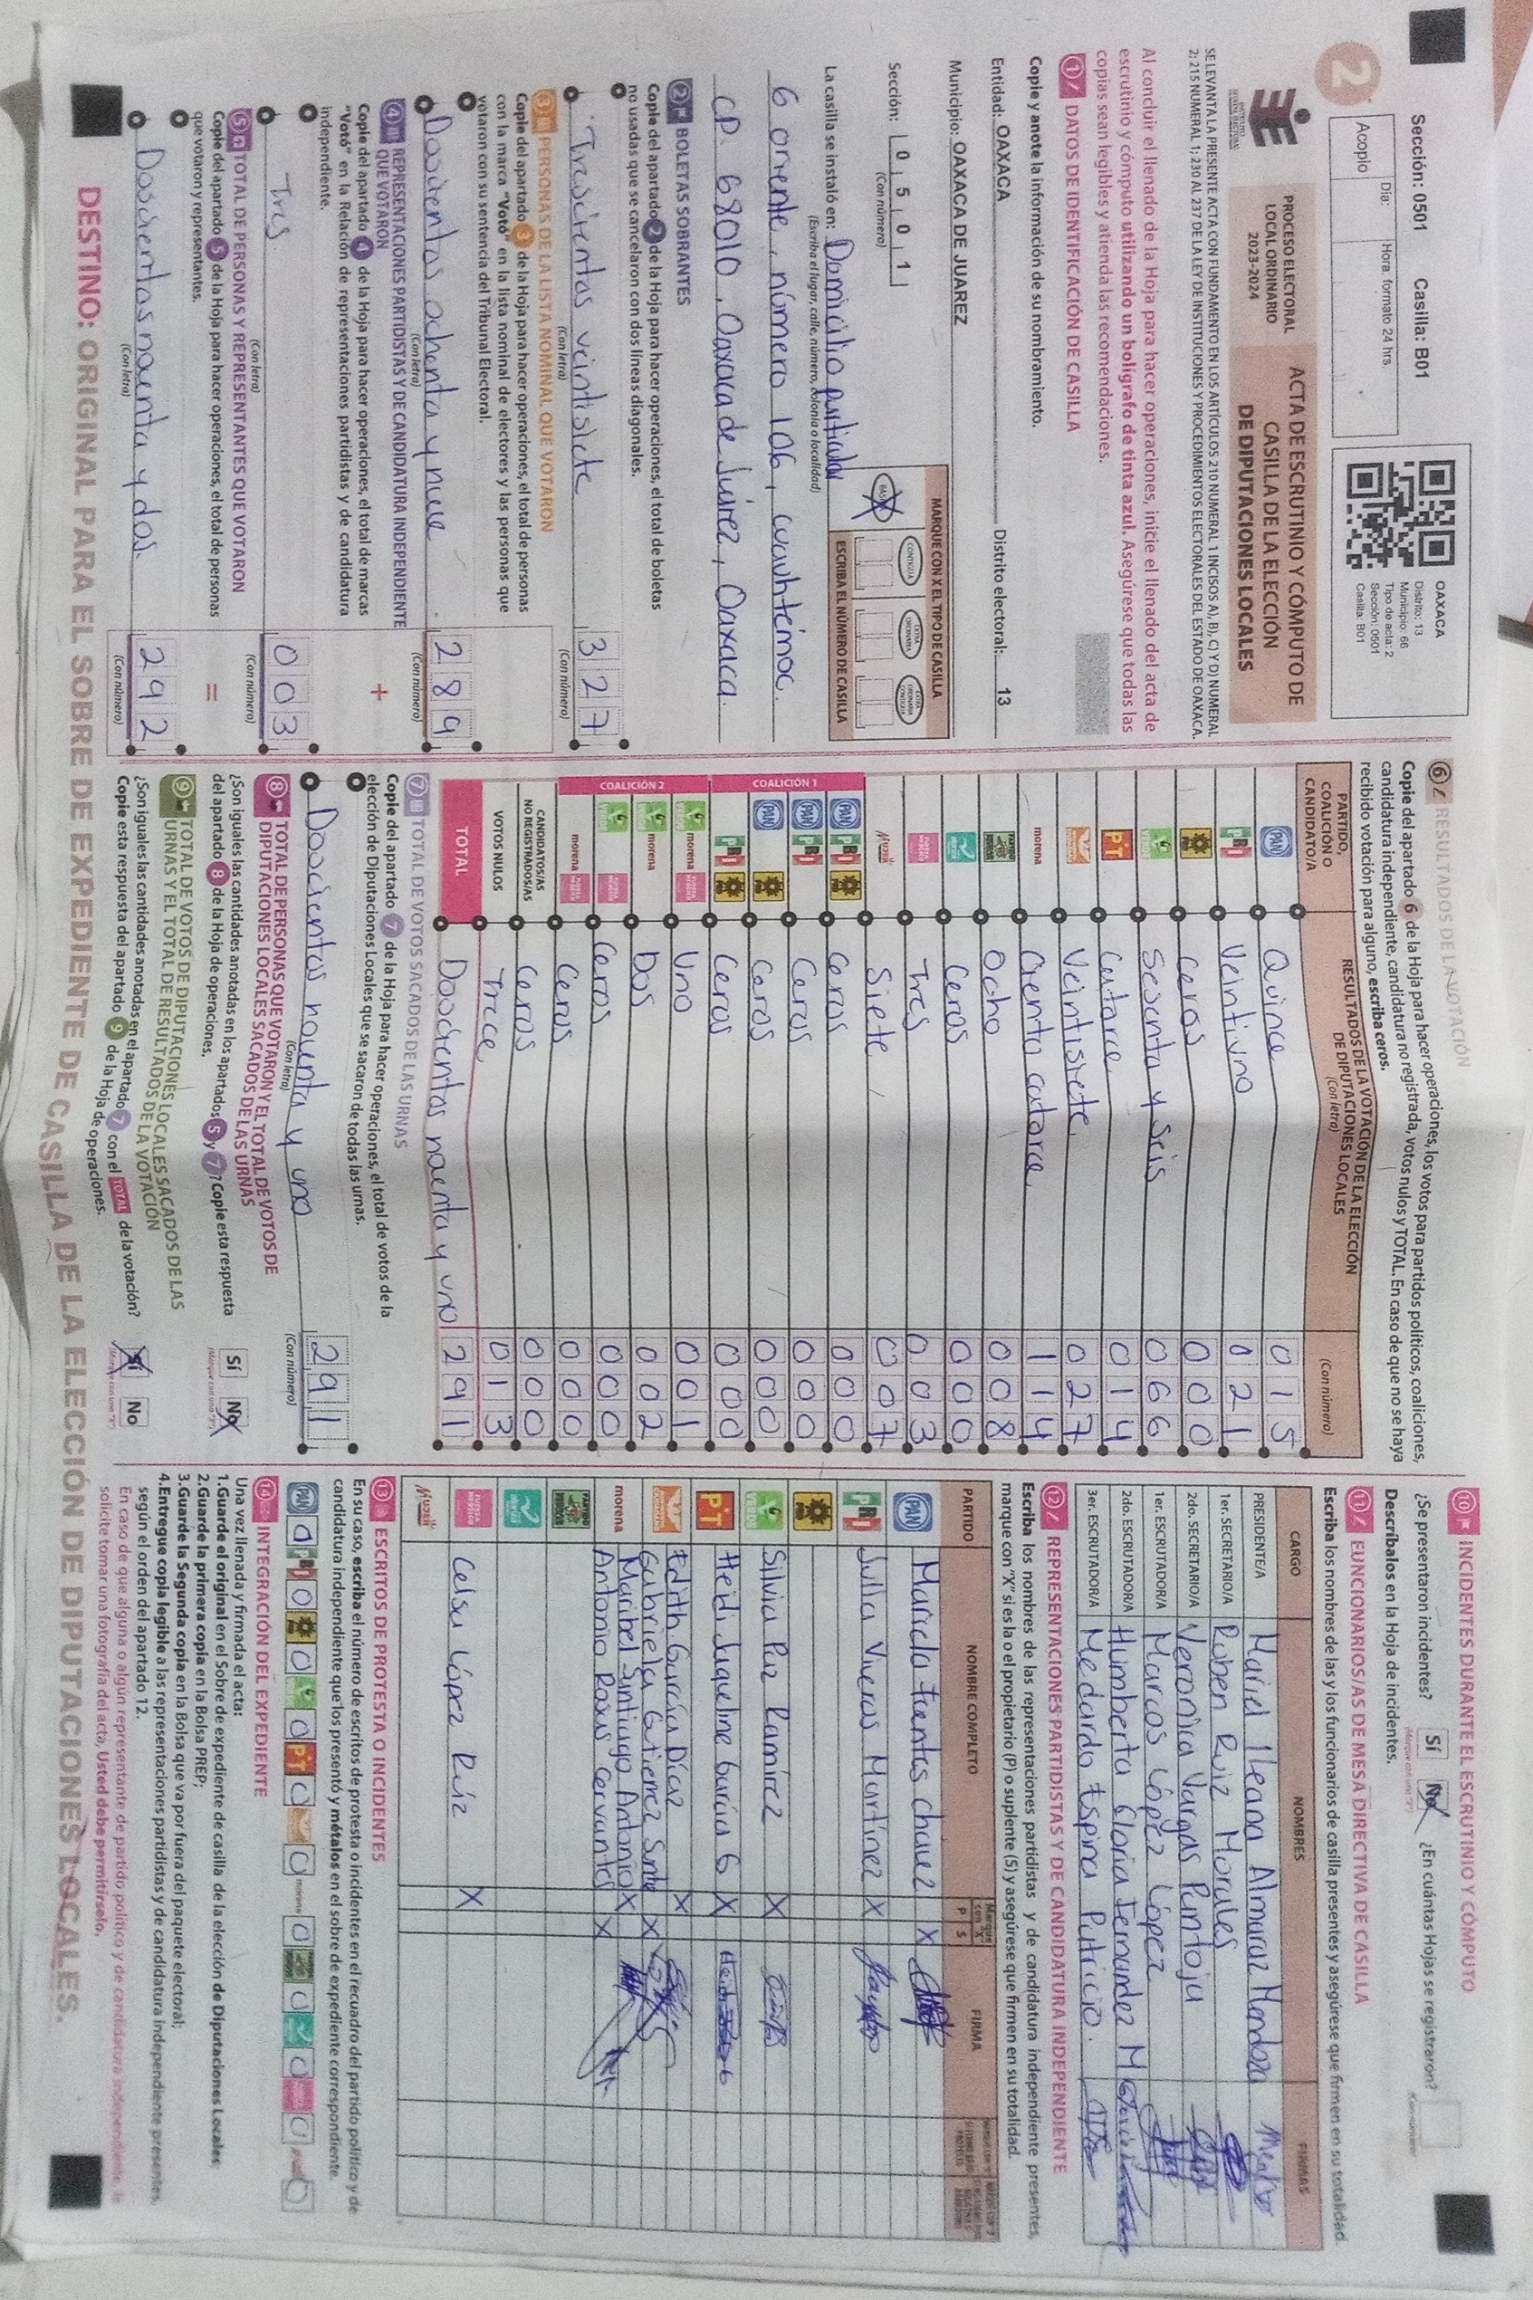 Sección: 0501 Casilla: B01
2
Día: Hora. formato 24 hrs.
Acopio
OAXACA
Distrito: 13
Municipio: 66
Tipo de acta: 2
Sección: 0501
Casilla: B01
PROCESO ELECTORAL
LOCAL ORDINARIO
2023-2024
ACTA DE ESCRUTINIO Y CÓMPUTO DE
CASILLA DE LA ELECCIÓN
DE DIPUTACIONES LOCALES
SE LEVANTA LA PRESENTE ACTA CON FUNDAMENTO EN LOS ARTÍCULOS 210 NUMERAL 1 INCISOS A), B), C) Y D) NUMERAL
2; 215 NUMERAL 1; 230 AL 237 DE LA LEY DE INSTITUCIONES Y PROCEDIMIENTOS ELECTORALES DEL ESTADO DE OAXACA.
Al concluir el llenado de la Hoja para hacer operaciones, inicie el llenado del acta de
escrutinio y cómputo utilizando un bolígrafo de tinta azul. Asegúrese que todas las
copias sean legibles y atienda las recomendaciones.
1 DATOS DE IDENTIFICACIÓN DE CASILLA
Copie y anote la información de su nombramiento.
Entidad: OAXACA Distrito electoral: 13
Municipio: OAXACA DE JUAREZ
Sección: 0 5 0 1
(Con número)
MARQUE CON X EL TIPO DE CASILLA
BÁSICA CONTIGUA EXTRA ORDINARIA EXTRA ORDINARIA CONTIGUA
ESCRIBA EL NÚMERO DE CASILLA
La casilla se instaló en: Domicilio particular
(Escriba el lugar, calle, número, colonia o localidad)
6 oriente, número 106, cuauhtémoc.
CP. 68010, Oaxaca de Juárez, Oaxaca.
2 BOLETAS SOBRANTES
Copie del apartado 2 de la Hoja para hacer operaciones, el total de boletas
no usadas que se cancelaron con dos líneas diagonales.
Trescientas veintisiete 3 2 7
(Con letra) (Con número)
3 PERSONAS DE LA LISTA NOMINAL QUE VOTARON
Copie del apartado 3 de la Hoja para hacer operaciones, el total de personas
con la marca "Votó" en la lista nominal de electores y las personas que
votaron con su sentencia del Tribunal Electoral.
Doscientas ochenta y nueve 2 8 9
(Con letra) (Con número)
4 REPRESENTACIONES PARTIDISTAS Y DE CANDIDATURA INDEPENDIENTE
QUE VOTARON
Copie del apartado 4 de la Hoja para hacer operaciones, el total de marcas
"Votó" en la Relación de representaciones partidistas y de candidatura
independiente.
+
Tres 0 0 3
(Con letra) (Con número)
5 TOTAL DE PERSONAS Y REPRESENTANTES QUE VOTARON
Copie del apartado 5 de la Hoja para hacer operaciones, el total de personas
que votaron y representantes.
=
Doscientas noventa y dos. 2 9 2
(Con letra) (Con número)
6 RESULTADOS DE LA VOTACIÓN
Copie del apartado 6 de la Hoja para hacer operaciones, los votos para partidos políticos, coaliciones,
candidatura independiente, candidatura no registrada, votos nulos y TOTAL. En caso de que no se haya
recibido votación para alguno, escriba ceros.
PARTIDO,
COALICIÓN O
CANDIDATO/A
RESULTADOS DE LA VOTACIÓN DE LA ELECCIÓN
DE DIPUTACIONES LOCALES
(Con letra)
(Con número)
PAN Quince 0 1 5
PRI Veintiuno 0 2 1
PRD Ceros 0 0 0
VERDE Sesenta y seis 0 6 6
PT Catorce 0 1 4
Veintisiete 0 2 7
morena Ciento catorce 1 1 4
Ocho 0 0 8
Ceros 0 0 0
Tres 0 0 3
MUJER Siete 0 0 7
COALICIÓN 1
PAN PRI PRD Ceros 0 0 0
PAN PRI Ceros 0 0 0
PAN PRD Ceros 0 0 0
PRI PRD Ceros 0 0 0
COALICIÓN 2
VERDE morena Uno 0 0 1
VERDE morena Dos 0 0 2
VERDE Ceros 0 0 0
morena Ceros 0 0 0
CANDIDATOS/AS
NO REGISTRADOS/AS Ceros 0 0 0
VOTOS NULOS Trece 0 1 3
TOTAL Doscientos noventa y uno 2 9 1
7 TOTAL DE VOTOS SACADOS DE LAS URNAS
Copie del apartado 7 de la Hoja para hacer operaciones, el total de votos de la
elección de Diputaciones Locales que se sacaron de todas las urnas.
Doscientos noventa y uno 2 9 1
(Con letra) (Con número)
8 TOTAL DE PERSONAS QUE VOTARON Y EL TOTAL DE VOTOS DE
DIPUTACIONES LOCALES SACADOS DE LAS URNAS
¿Son iguales las cantidades anotadas en los apartados 5 y 7? Copie esta respuesta
del apartado 8 de la Hoja de operaciones.
Sí No
9 TOTAL DE VOTOS DE DIPUTACIONES LOCALES SACADOS DE LAS
URNAS Y EL TOTAL DE RESULTADOS DE LA VOTACIÓN
¿Son iguales las cantidades anotadas en el apartado 7 con el TOTAL de la votación?
Copie esta respuesta del apartado 9 de la Hoja de operaciones.
Sí No
10 INCIDENTES DURANTE EL ESCRUTINIO Y CÓMPUTO
¿Se presentaron incidentes? Sí No ¿En cuántas Hojas se registraron?
Descríbalos en la Hoja de incidentes.
11 FUNCIONARIOS/AS DE MESA DIRECTIVA DE CASILLA
Escriba los nombres de las y los funcionarios de casilla presentes y asegúrese que firmen en su totalidad.
CARGO NOMBRES FIRMAS
PRESIDENTE/A Mariel Ileana Almaraz Mendoza
1er. SECRETARIO/A Ruben Ruiz Morales
2do. SECRETARIO/A Veronica Vargas Pantoja
1er. ESCRUTADOR/A Marcos López López
2do. ESCRUTADOR/A Humberta Gloria Fernandez M
3er. ESCRUTADOR/A Medardo Espina Patricio.
12 REPRESENTACIONES PARTIDISTAS Y DE CANDIDATURA INDEPENDIENTE
Escriba los nombres de las representaciones partidistas y de candidatura independiente presentes,
marque con "X" si es la o el propietario (P) o suplente (S) y asegúrese que firmen en su totalidad.
PARTIDO NOMBRE COMPLETO Marque con X P S FIRMA
PAN Marcelo Fuentes chavez X
PRI Julia Viveros Martínez X
PRD
VERDE Silvia Paz Ramírez X
PT Heidi Jaqueline García G X
Edith García Díaz X
Gabriela Gutierrez X
morena Maribel Santiago Antonio X
Antonio Rosas Cervantes X
Celsa López Ruíz X
MUJER
13 ESCRITOS DE PROTESTA O INCIDENTES
En su caso, escriba el número de escritos de protesta o incidentes en el recuadro del partido político y de
candidatura independiente que los presentó y métalos en el sobre de expediente correspondiente.
PAN 0 PRI 0 PRD 0 VERDE 0 PT 0 0 morena 0 0 0 0 0
14 INTEGRACIÓN DEL EXPEDIENTE
Una vez llenada y firmada el acta:
1.Guarde el original en el Sobre de expediente de casilla de la elección de Diputaciones Locales;
2.Guarde la primera copia en la Bolsa PREP;
3.Guarde la Segunda copia en la Bolsa que va por fuera del paquete electoral;
4.Entregue copia legible a las representaciones partidistas y de candidatura independiente presentes,
según el orden del apartado 12.
En caso de que alguna o algún representante de partido político y de candidatura independiente, le
solicite tomar una fotografía del acta, Usted debe permitírselo.
DESTINO: ORIGINAL PARA EL SOBRE DE EXPEDIENTE DE CASILLA DE LA ELECCIÓN DE DIPUTACIONES LOCALES.